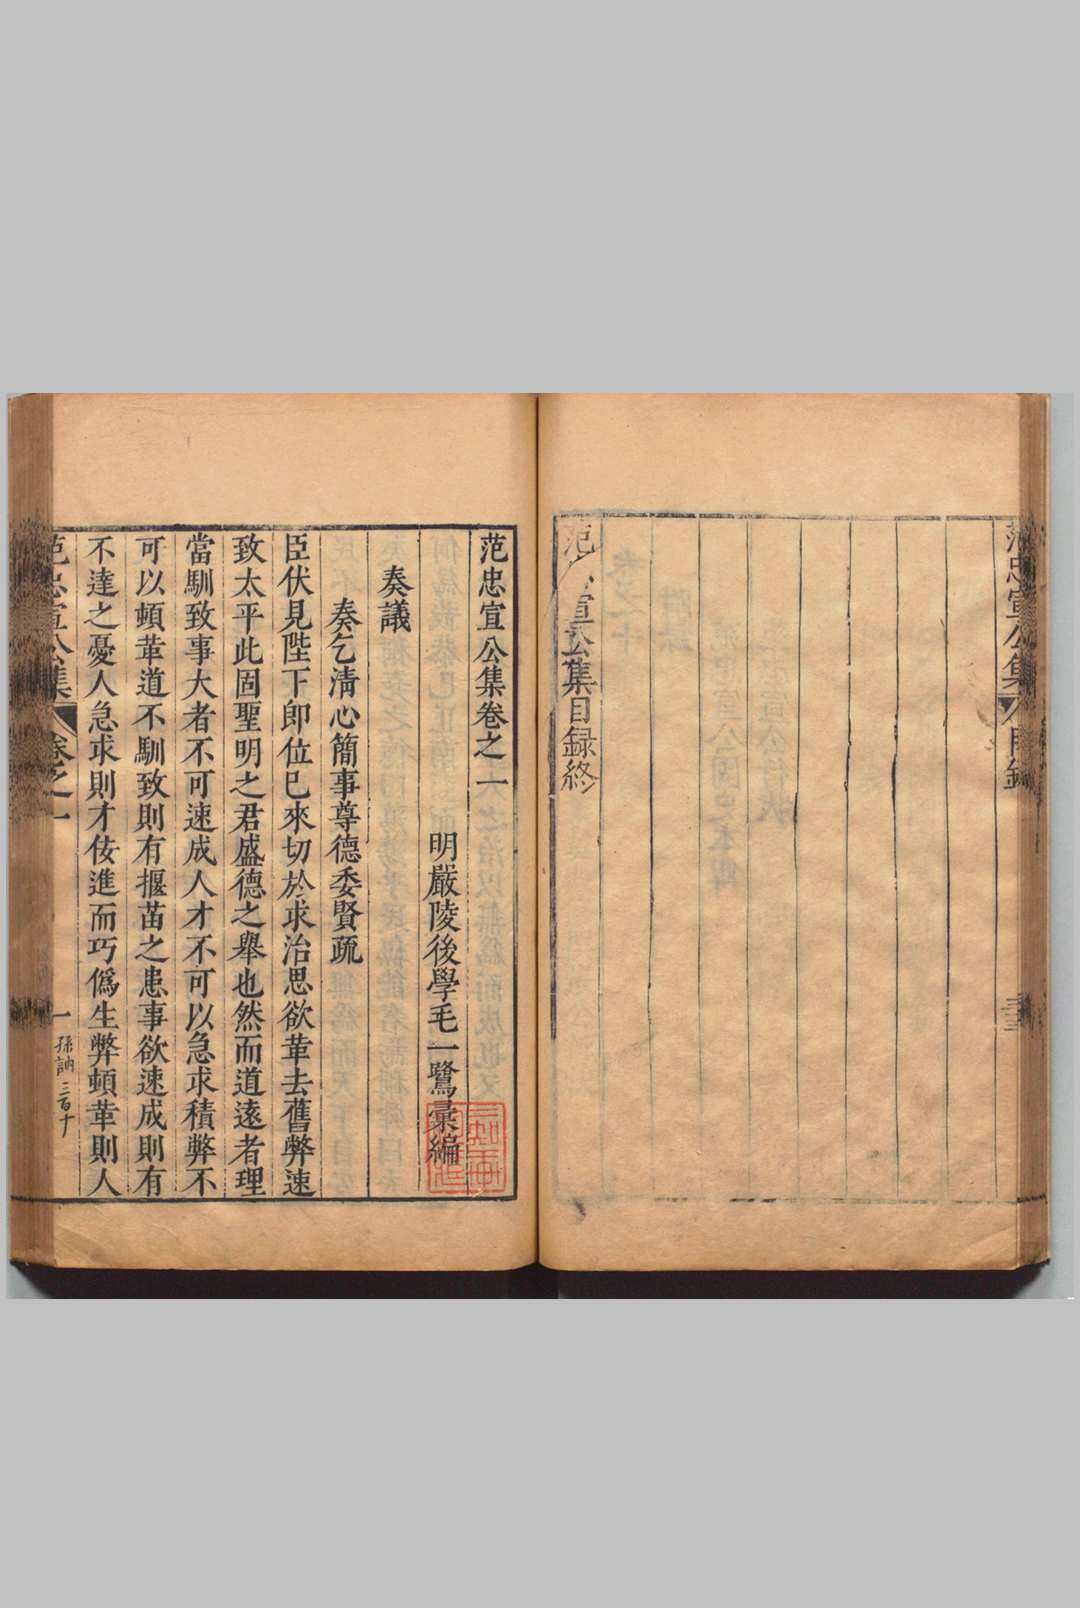 范忠宣公集 目錄
三三
范 宣公集目録終
范忠宣公集卷之一
明嚴陵後學毛一鷺彙編
奏議
奏乞清心簡事尊德委賢疏
臣伏見陛下即位已來切於求治思欲革去舊弊速
致太平此固聖明之君盛德之舉也然而道遠者理
當馴致事大者不可速成人才不可以急求積弊不
可以頓革道不馴致則有揠苗之患事欲速成則有
不達之憂人急求則才佞進而巧僞生弊頓革則人
范忠宣公集 卷之一
一
孫訥 三百十